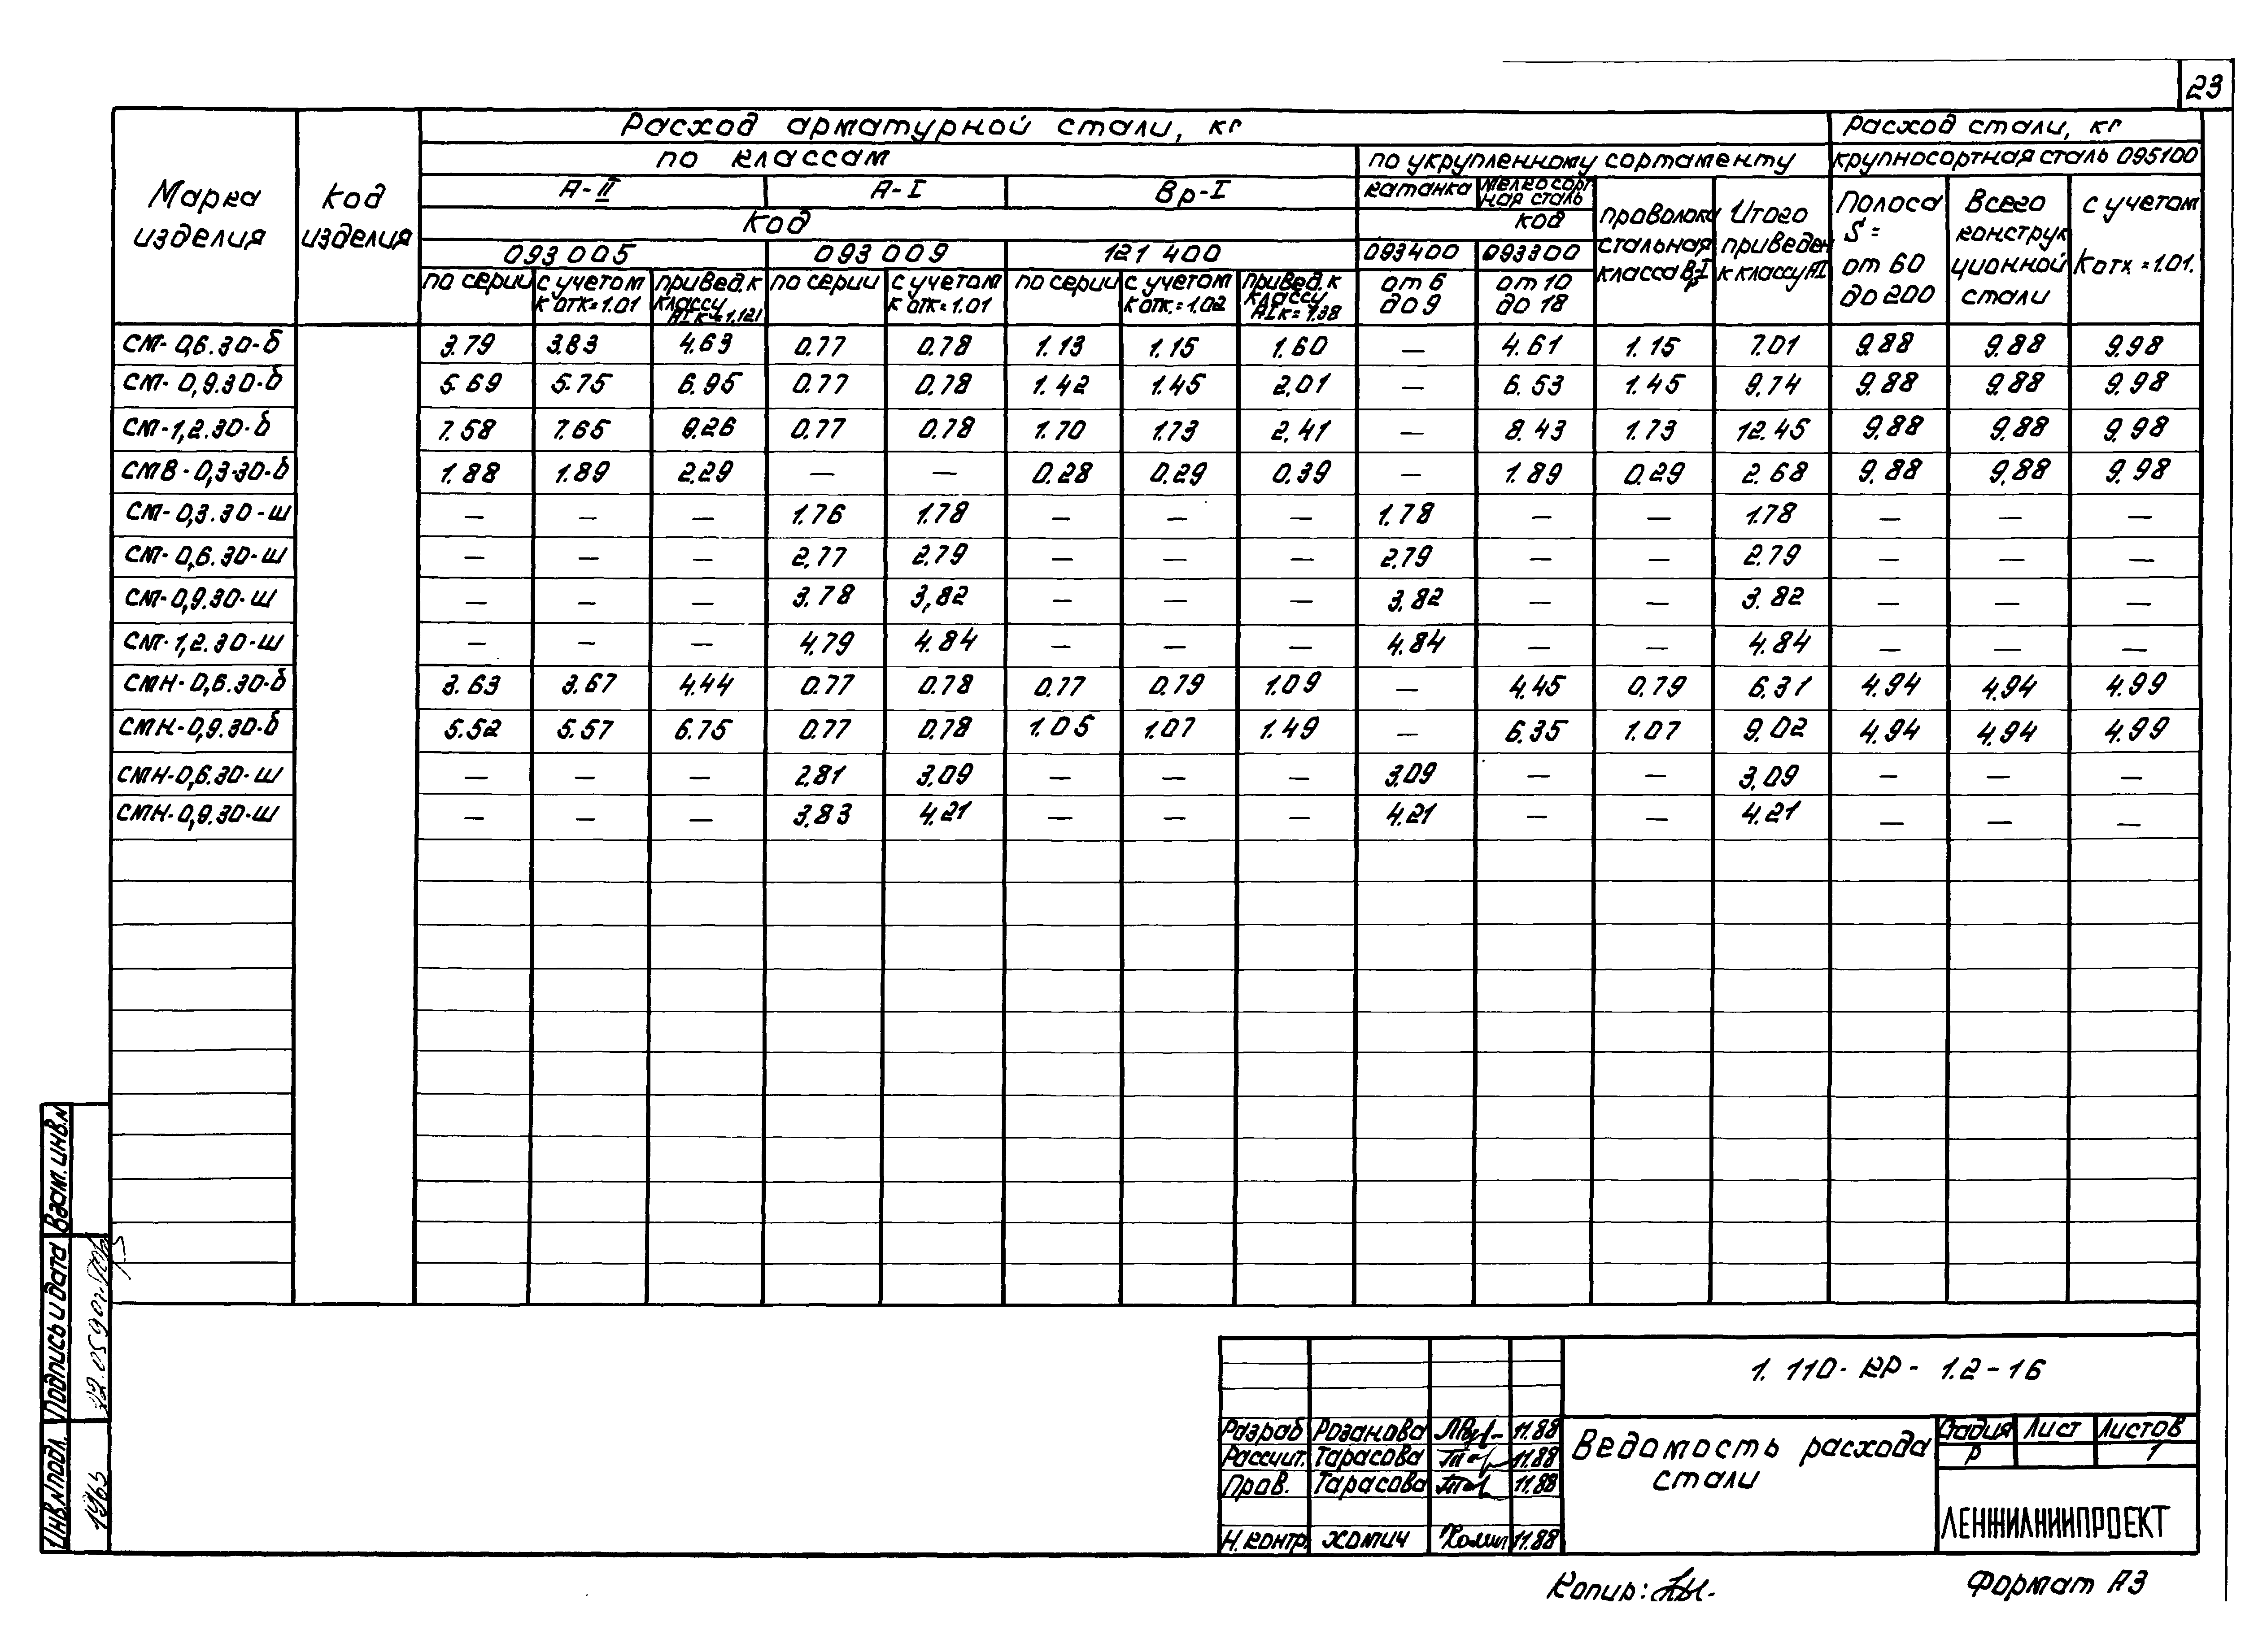 23
Расход арматурной стали, кг | Расход стали, кг
по классам | по укрупленному сортаменту | крупносортная сталь 095100
Марка изделия | Код изделия | А-II | А-I | Вр-I | катанка | мелкосортная сталь | проволока стальная класса Вр-I | Итого приведен к классу АI | Полоса S= от 60 до 200 | Всего конструкционной стали | с учетом Котх.=1.01.
Код | код
093 005 | 093 009 | 121 400 | 093400 | 093300
по серии | с учетом К отк=1.01 | привед. к классу АI К=1.121 | по серии | с учетом К отк=1.01 | по серии | с учетом к отк.=1.02 | привед. к классу АI к=1.38 | от 6 до 9 | от 10 до 18
СМ-0,6.30-б | 3.79 | 3.83 | 4.63 | 0.77 | 0.78 | 1.13 | 1.15 | 1.60 | — | 4.61 | 1.15 | 7.01 | 9.88 | 9.88 | 9.98
СМ-0,9.30-б | 5.69 | 5.75 | 6.95 | 0.77 | 0.78 | 1.42 | 1.45 | 2.01 | — | 6.53 | 1.45 | 9.74 | 9.88 | 9.88 | 9.98
СМ-1,2.30-б | 7.58 | 7.65 | 9.26 | 0.77 | 0.78 | 1.70 | 1.73 | 2.41 | — | 8.43 | 1.73 | 12.45 | 9.88 | 9.88 | 9.98
СМВ-0,3-30-б | 1.88 | 1.89 | 2.29 | — | — | 0.28 | 0.29 | 0.39 | — | 1.89 | 0.29 | 2.68 | 9.88 | 9.88 | 9.98
СМ-0,3.30-ш | — | — | — | 1.76 | 1.78 | — | — | — | 1.78 | — | — | 1.78 | — | — | —
СМ-0,6.30-ш | — | — | — | 2.77 | 2.79 | — | — | — | 2.79 | — | — | 2.79 | — | — | —
СМ-0,9.30-ш | — | — | — | 3.78 | 3,82 | — | — | — | 3.82 | — | — | 3.82 | — | — | —
СМ-1,2.30-ш | — | — | — | 4.79 | 4.84 | — | — | — | 4.84 | — | — | 4.84 | — | — | —
СМН-0,6.30-б | 3.63 | 3.67 | 4.44 | 0.77 | 0.78 | 0.77 | 0.79 | 1.09 | — | 4.45 | 0.79 | 6.31 | 4.94 | 4.94 | 4.99
СМН-0,9.30-б | 5.52 | 5.57 | 6.75 | 0.77 | 0.78 | 1.05 | 1.07 | 1.49 | — | 6.35 | 1.07 | 9.02 | 4.94 | 4.94 | 4.99
СМН-0,6.30-ш | — | — | — | 2.81 | 3.09 | — | — | — | 3.09 | — | — | 3.09 | — | — | —
СМН-0,9.30-ш | — | — | — | 3.83 | 4.21 | — | — | — | 4.21 | — | — | 4.21 | — | — | —
Взам. инв. N
Подпись и дата
Инв. N подл.
1.110-КР-1.2-16
Разраб | Розанова | 11.88
Рассчит. | Тарасова | 11.88
Пров. | Тарасова | 11.88
Н. контр | Хомич | 11.88
Ведомость расхода
стали
Стадия | Лист | Листов
Р | 1
ЛЕНЖИЛНИИПРОЕКТ
Копир:
Формат А3